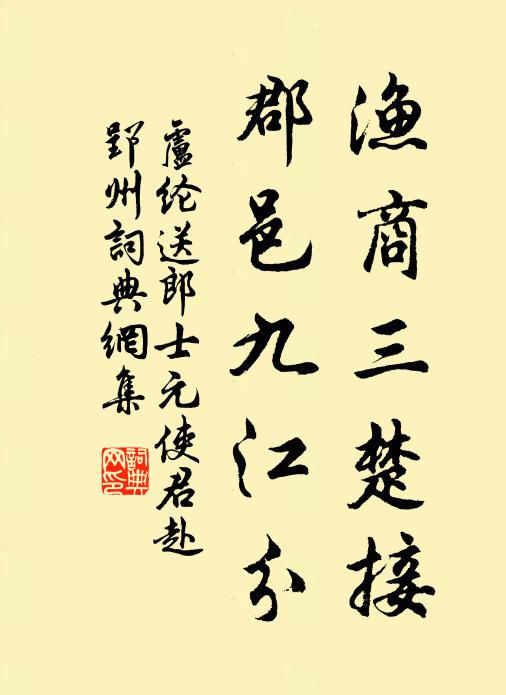 渔商三楚接
郡邑九江分
盧纶送郎士元使君赴
郢州詞典網集
詞典网印